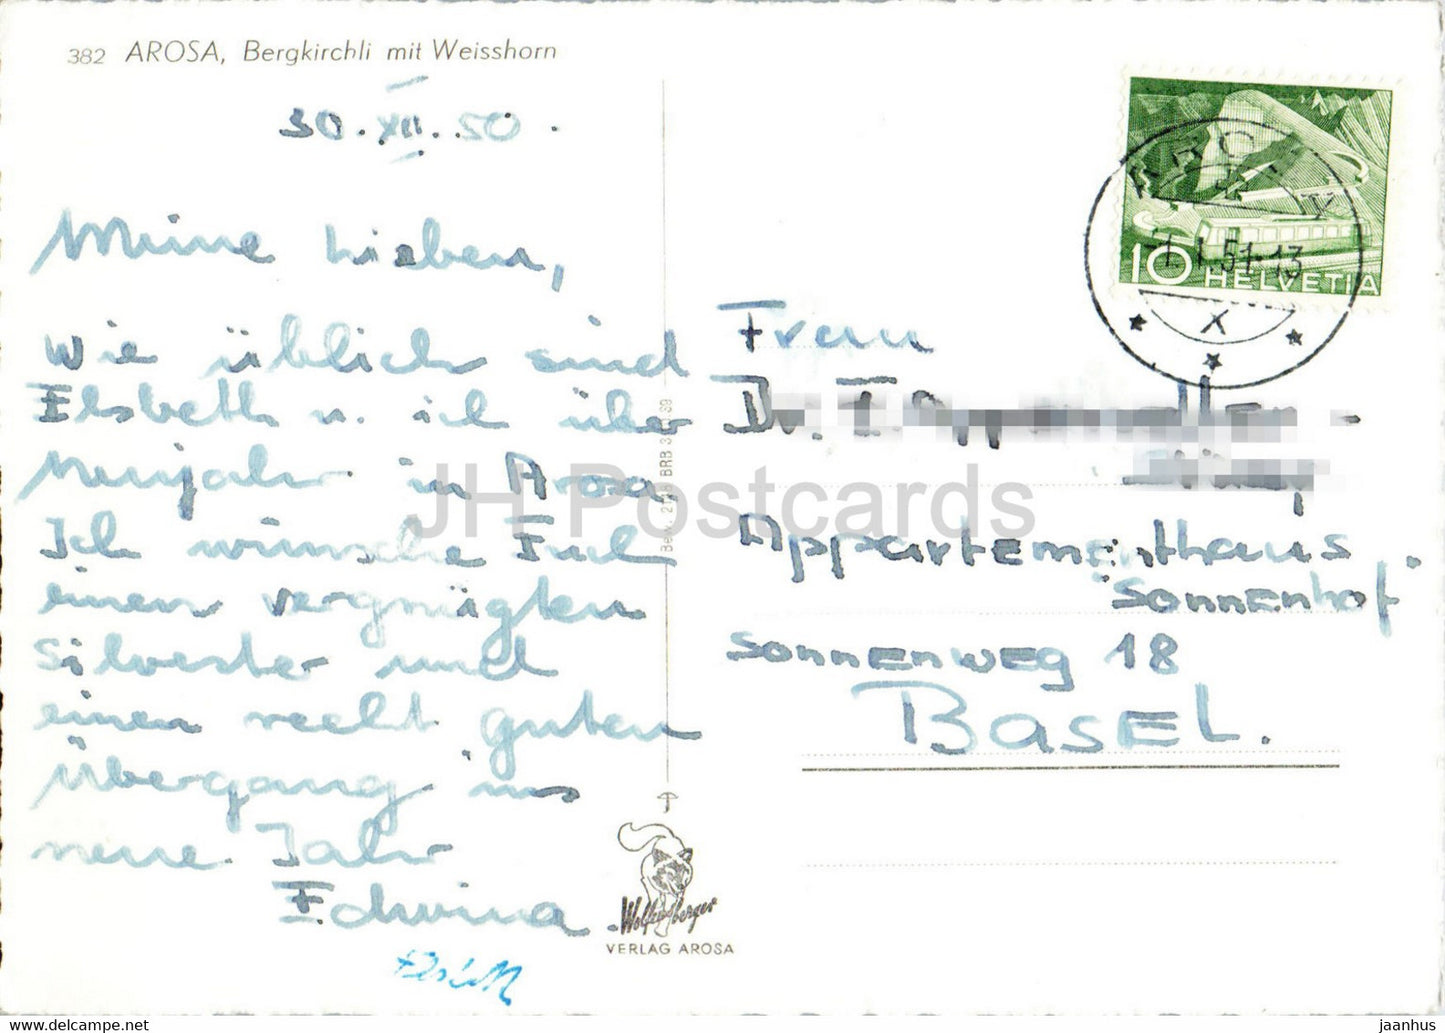 382 AROSA, Bergkirchli mit Weisshorn
30. XII. 50.
Meine Lieben,
Wie üblich sind
Elsbeth u. ich über
Neujahr in Arosa.
Ich wünsche Euch
einen vergnügten
Silvester und
einen recht guten
Übergang ins
neue Jahr
Edwina
HELVETIA
10
1. I. 51-13
X
Frau
Dr.
Appartementhaus
"Sonnenhof"
Sonnenweg 18
Basel.
Wolfensberger
VERLAG AROSA
JH Postcards
delcampe.net
jaanhus